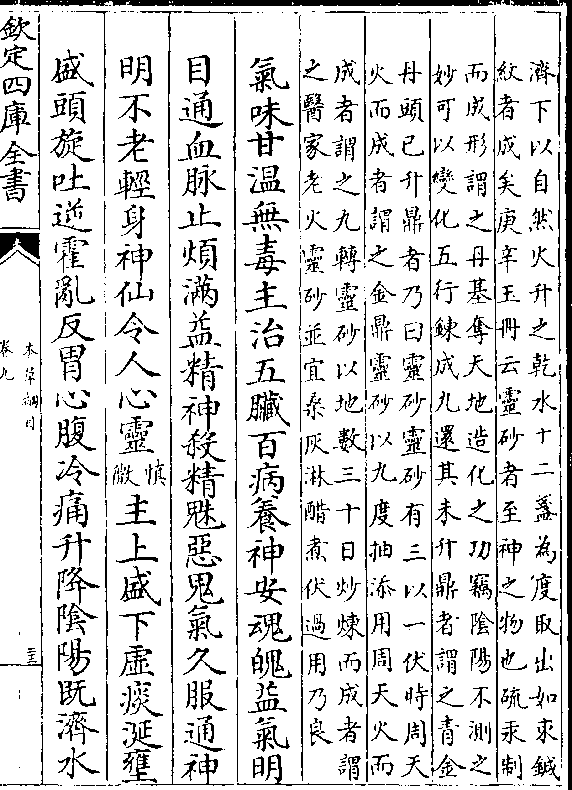 濟下以自然火升之乾水十二盞為度取出如束鍼
紋者成矣庚辛玉冊云靈砂者至神之物也硫汞制
而成形謂之丹基奪天地造化之功竊陰陽不測之
妙可以變化五行鍊成九還其未升鼎者謂之青金
丹頭已升鼎者乃曰靈砂靈砂有三以一伏時周天
火而成者謂之金鼎靈砂以九度抽添用周天火而
成者謂之九轉靈砂以地數三十日炒煉而成者謂
之醫家老火靈砂並宜桑灰淋醋煮伏過用乃良
氣味甘溫無毒主治五臟百病養神安魂魄益氣明
目通血脉止煩滿益精神殺精魅惡鬼氣久服通神
明不老輕身神仙令人心靈慎微主上盛下虛痰涎壅
盛頭旋吐逆霍亂反胃心腹冷痛升降陰陽既濟水
欽定四庫全書
本草綱目
卷九